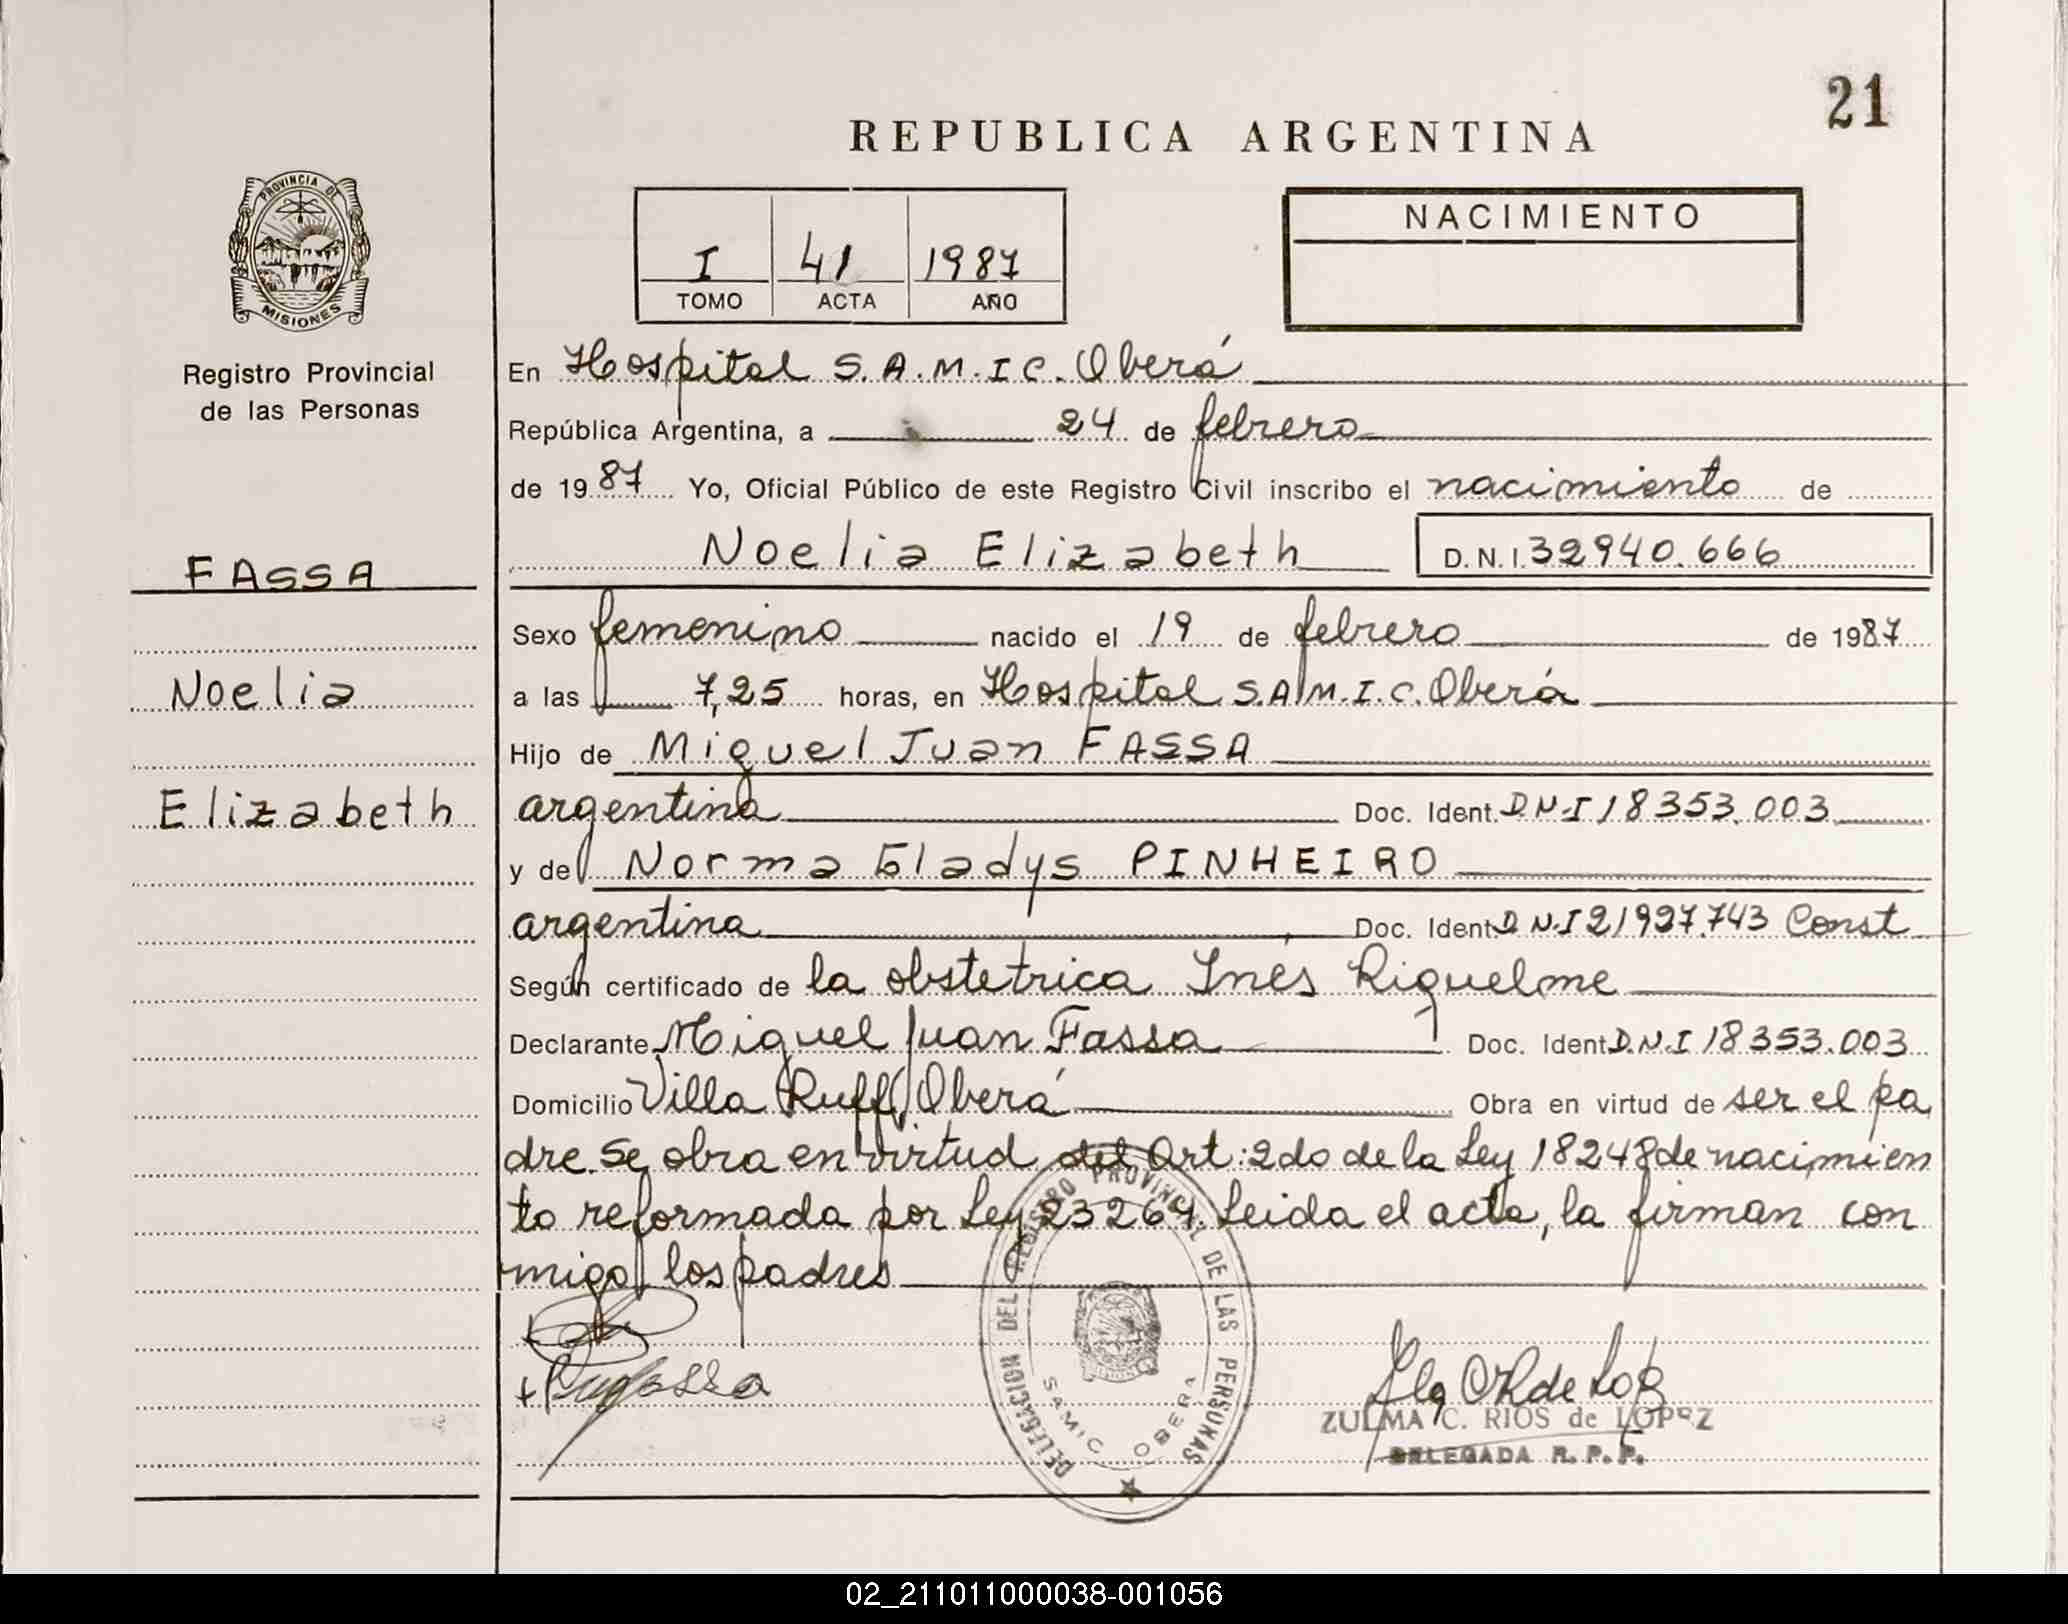 21
REPUBLICA ARGENTINA
PROVINCIA DE
MISIONES
Registro Provincial
de las Personas
I 41 1987
TOMO ACTA AÑO
NACIMIENTO
En Hospital S.A.M.I.C. Oberá
República Argentina, a 24 de febrero
de 1987 Yo, Oficial Público de este Registro Civil inscribo el nacimiento de
Noelia Elizabeth D.N.I. 32940.666
FASSA
Noelia
Elizabeth
Sexo femenino nacido el 19 de febrero de 1987
a las 7,25 horas, en Hospital S.A.M.I.C. Oberá
Hijo de Miguel Juan FASSA
argentina Doc. Ident. D.N.I 18353.003
y de Norma Gladys PINHEIRO
argentina Doc. Ident. D.N.I 21927.743 Const
Según certificado de la obstetrica Ines Riquelme
Declarante Miguel Juan Fassa Doc. Ident D.N.I 18353.003
Domicilio Villa Ruff, Oberá Obra en virtud de ser el pa
dre. Se obra en virtud del Art: 2do de la Ley 18248 de nacimien
to reformada por Ley 23264. Leida el acta, la firman con
migo los padres
DELEGACION DEL REGISTRO PROVINCIAL DE LAS PERSONAS
SAMIC OBERA
ZULMA C. RIOS de LOPEZ
DELEGADA R.P.P.
02_211011000038-001056